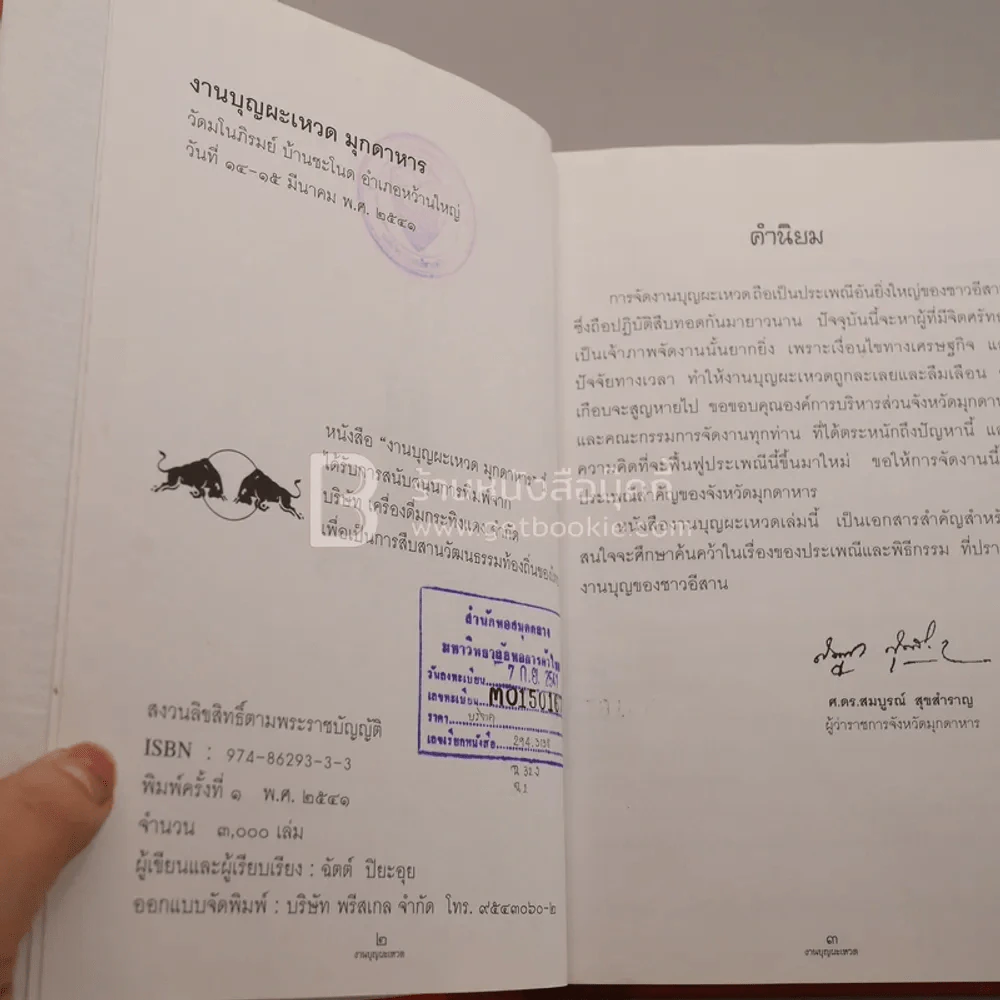 งานบุญผะเหวด มุกดาหาร
วัดมโนภิรมย์ บ้านชะโนด อำเภอหว้านใหญ่
วันที่ ๑๔-๑๕ มีนาคม พ.ศ. ๒๕๔๑
หนังสือ “งานบุญผะเหวด มุกดาหาร”
ได้รับการสนับสนุนการพิมพ์จาก
บริษัท เครื่องดื่มกระทิงแดง จำกัด
เพื่อเป็นการสืบสานวัฒนธรรมท้องถิ่นของ
สำนักหอสมุดกลาง
มหาวิทยาลัยหอการค้าไทย
วันลงทะเบียน 7 ก.ย. 2541
เลขทะเบียน M0150167
ราคา บริจาค
เลขเรียกหนังสือ 294.3138
ฉ 323
ฉ.1
สงวนลิขสิทธิ์ตามพระราชบัญญัติ
ISBN : 974-86293-3-3
พิมพ์ครั้งที่ ๑ พ.ศ. ๒๕๔๑
จำนวน ๓,๐๐๐ เล่ม
ผู้เขียนและผู้เรียบเรียง : ฉัตต์ ปิยะอุย
ออกแบบจัดพิมพ์ : บริษัท พรีสเกล จำกัด โทร. ๙๕๔๓๐๖๐-๒
๒
งานบุญผะเหวด
คำนิยม
การจัดงานบุญผะเหวด ถือเป็นประเพณีอันยิ่งใหญ่ของชาวอีสาน
ซึ่งถือปฏิบัติสืบทอดกันมายาวนาน ปัจจุบันนี้จะหาผู้ที่มีจิตศรัทธา
เป็นเจ้าภาพจัดงานนั้นยากยิ่ง เพราะเงื่อนไขทางเศรษฐกิจ แล
ปัจจัยทางเวลา ทำให้งานบุญผะเหวดถูกละเลยและลืมเลือน
เกือบจะสูญหายไป ขอขอบคุณองค์การบริหารส่วนจังหวัดมุกดาห
และคณะกรรมการจัดงานทุกท่าน ที่ได้ตระหนักถึงปัญหานี้ แล
ความคิดที่จะฟื้นฟูประเพณีนี้ขึ้นมาใหม่ ขอให้การจัดงานนี้
ประเพณีสำคัญของจังหวัดมุกดาหาร
หนังสืองานบุญผะเหวดเล่มนี้ เป็นเอกสารสำคัญสำหรั
สนใจจะศึกษาค้นคว้าในเรื่องของประเพณีและพิธีกรรม ที่ปรา
งานบุญของชาวอีสาน
ศ.ดร.สมบูรณ์ สุขสำราญ
ผู้ว่าราชการจังหวัดมุกดาหาร
๓
งานบุญผะเหวด
ร้านหนังสือบุคกี้
www.getbookie.com